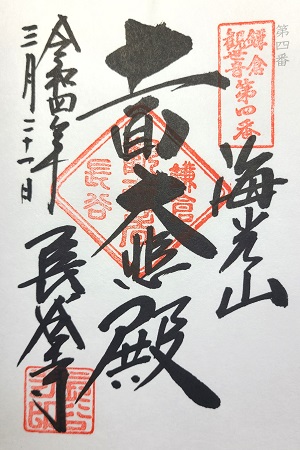 第四番
鎌倉
観世音第四番
海光山
十一面大悲殿
鎌倉
長谷
令和四年
三月二十一日
長谷寺